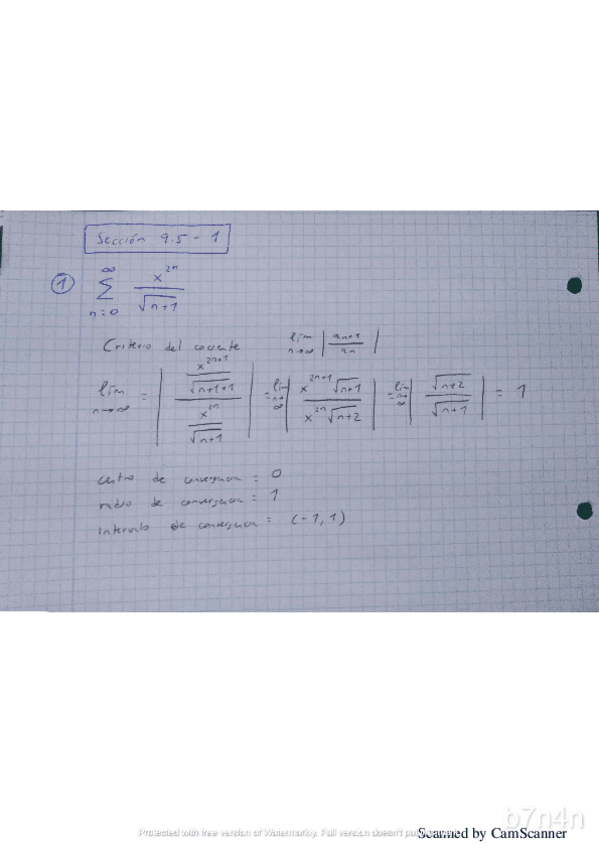 Sección 9.5 - 1
① ∑_{n=0}^{∞} x^{2n} / √(n+1)
Criterio del cociente lím_{n→∞} | a_{n+1} / a_n |
lím_{n→∞} = | (x^{2n+1} / √(n+1+1)) / (x^{2n} / √(n+1)) | = lím_{n→∞} | x^{2n+1} √(n+1) / x^{2n} √(n+2) | = lím_{n→∞} | √(n+2) / √(n+1) | = 1
centro de convergencia = 0
radio de convergencia = 1
Intervalo de convergencia = (-1, 1)
b7n4n
Protected with free version of Watermarkly. Full version doesn't put
Scanned by CamScanner